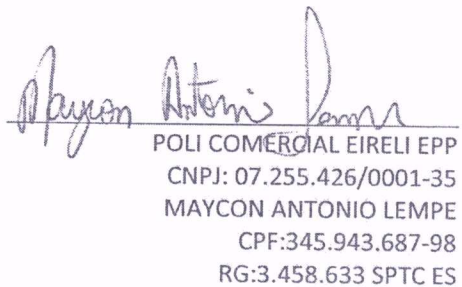 Maycon Antonio Lempe
POLI COMERCIAL EIRELI EPP
CNPJ: 07.255.426/0001-35
MAYCON ANTONIO LEMPE
CPF:345.943.687-98
RG:3.458.633 SPTC ES